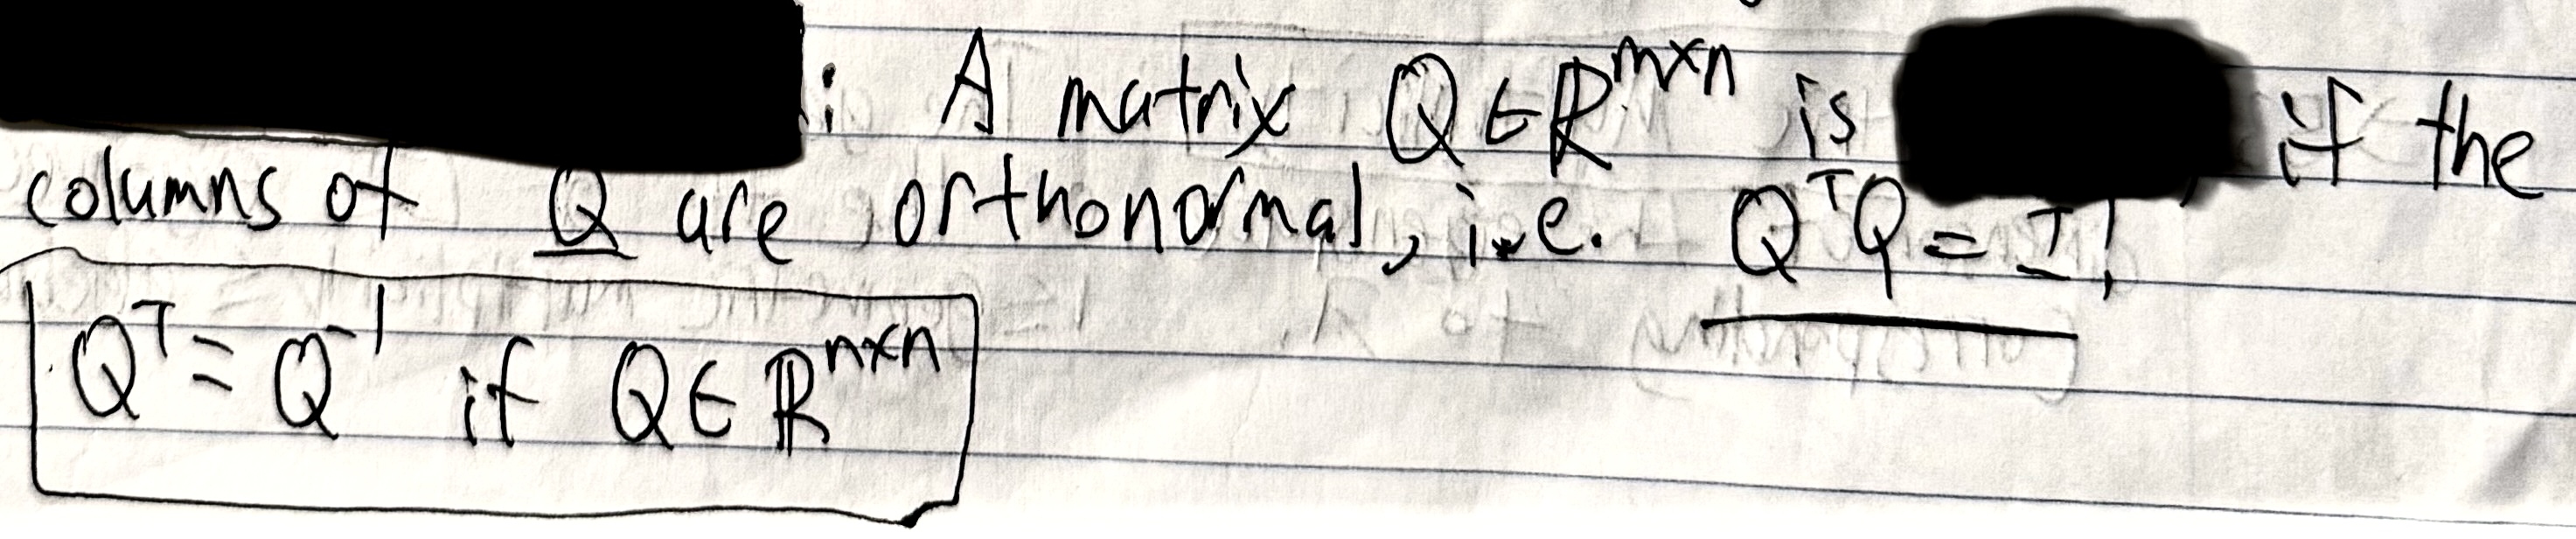 : A matrix Q ∈ ℝ^{m×n} is if the
columns of Q are orthonormal, i.e. Q^T Q = I!
Q^T = Q^{-1} if Q ∈ ℝ^{n×n}